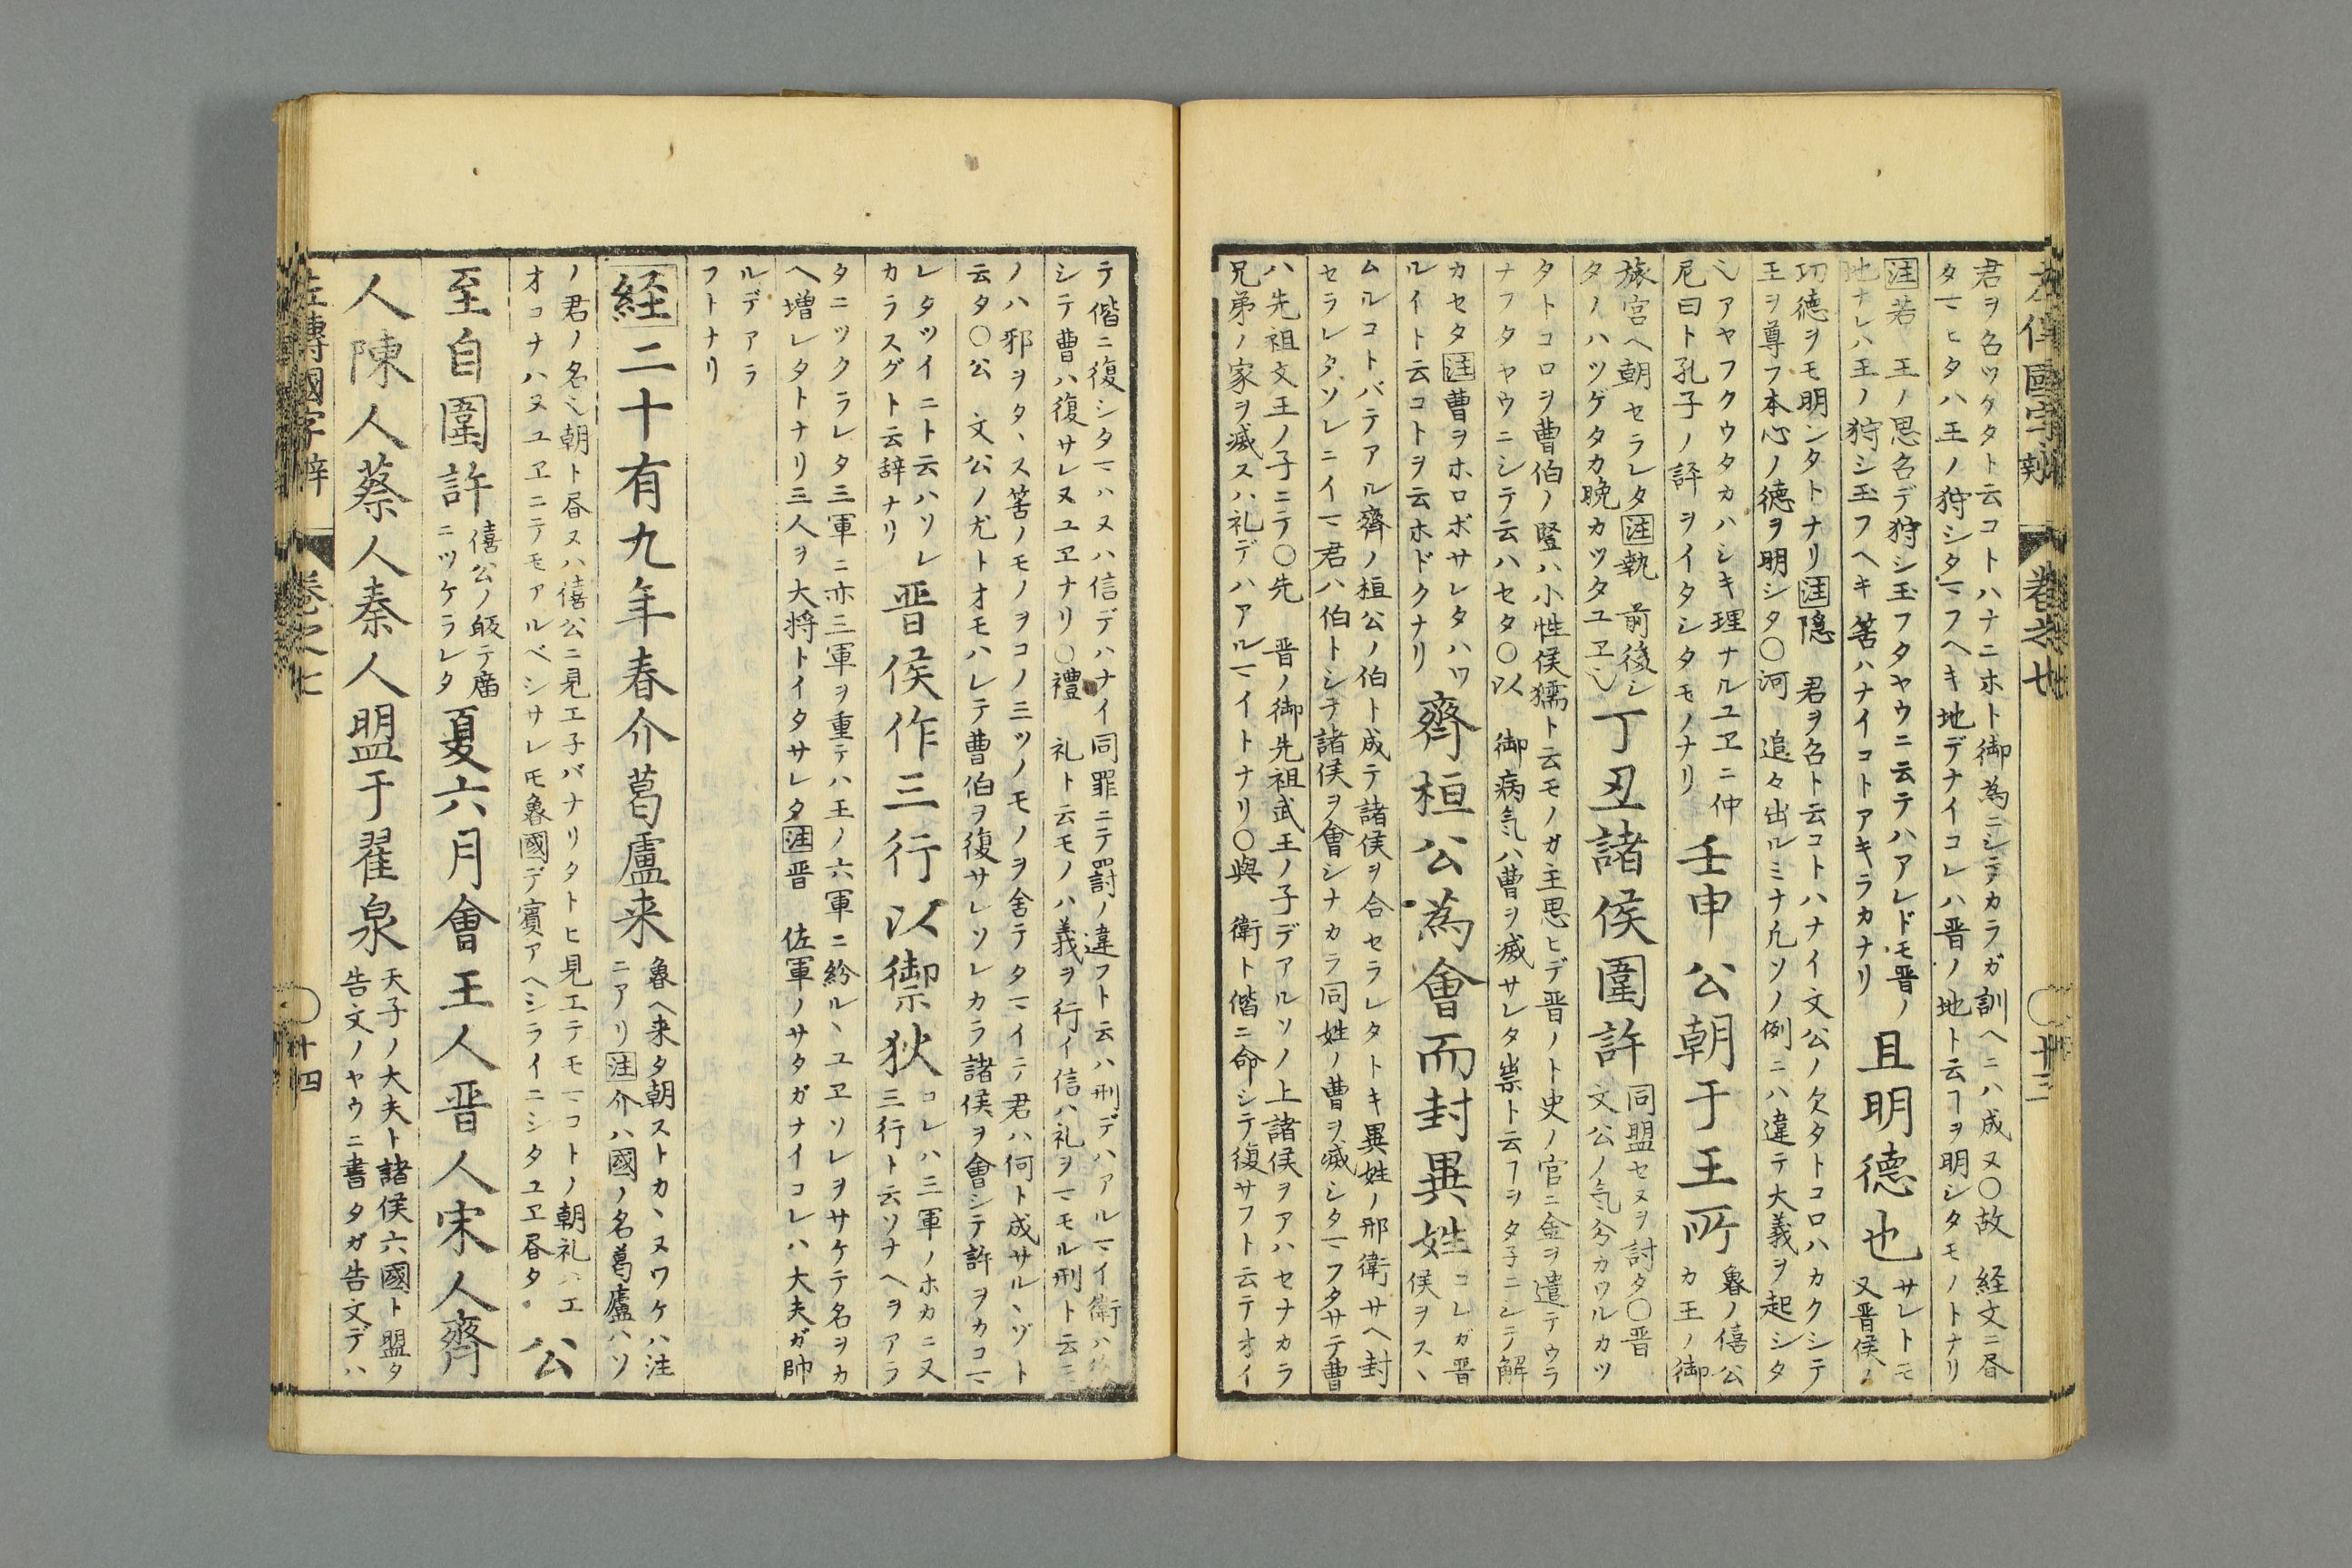 左傳國字辨 巻之七 十三
君ヲ名ツケタト云コトハナニホト御為ニシテカラガ訓ヘニハ成ヌ〇故 経文ニ昏
タマヒタハ王ノ狩シタマフヘキ地デナイコレハ晋ノ地ト云ヿヲ明シタモノトナリ
注若 王ノ思召デ狩シ玉フタヤウニ云テハアレドモ晋ノ
地ナレハ王ノ狩シ玉フヘキ筈ハナイコトアキラカナリ
且明德也
サレトモ
又晋侯ノ
功德ヲモ明ンタトナリ注隠 君ヲ名ト云コトハナイ文公ノ欠タトコロハカクシテ
王ヲ尊フ本心ノ德ヲ明シタ〇河 追々出ルミナ凡ソノ例ニハ違テ大義ヲ起シタ
シアヤフクウタカハシキ理ナルユヱニ仲
尼曰ト孔子ノ評ヲイタシタモノナリ
壬申公朝于王所
魯ノ僖公
カ王ノ御
旅宮ヘ朝セラレタ注執 前後シ
タノハツゲタカ晩カツタユヱ
丁丑諸侯圍許
同盟セヌヲ討タ〇晋
文公ノ気分カワルカツ
タトコロヲ曹伯ノ豎ハ小性侯獳ト云モノガ主思ヒデ晋ノト史ノ官ニ金ヲ遣テウラ
ナフタヤウニシテ云ハセタ〇以 御病気ハ曹ヲ滅サレタ祟ト云ヿヲタ子ニシテ解
カセタ注曹ヲホロボサレタハワ
ルイト云コトヲ云ホドクナリ
齊桓公為會而封異姓
コレガ晋
侯ヲスヽ
ムルコトバテアル齊ノ桓公ノ伯ト成テ諸侯ヲ合セラレタトキ異姓ノ邢衛サヘ封
セラレタソレニイマ君ハ伯トシテ諸侯ヲ會シナカラ同姓ノ曹ヲ滅シタマフタサテ曹
ハ先祖文王ノ子ニテ〇先 晋ノ御先祖武王ノ子デアルソノ上諸侯ヲアハセナカラ
兄弟ノ家ヲ滅スハ礼デハアルマイトナリ〇與 衛ト偕ニ命シテ復サフト云テオイ
テ偕ニ復シタマハヌハ信デハナイ同罪ニテ罰ノ違フト云ハ刑デハアルマイ衛ハ
シテ曹ハ復サレヌユヱナリ〇禮 礼ト云モノハ義ヲ行イ信ハ礼ヲマモル刑ト云
ノハ邪ヲタヽス筈ノモノヲコノ三ツノモノヲ舍テタマイテ君ハ何ト成サルヽゾト
云タ〇公 文公ノ尤トオモハレテ曹伯ヲ復サレソレカラ諸侯ヲ會シテ許ヲカコマ
レタツイニト云ハソレ
カラスグト云辞ナリ
晋侯作三行以禦狄
コレハ三軍ノホカニ又
三行ト云ソナヘヲアラ
タニツクラレタ三軍ニ亦三軍ヲ重テハ王ノ六軍ニ紛ルヽユヱソレヲサケテ名ヲカ
ヘ増レタトナリ三人ヲ大将トイタサレタ注晋 佐軍ノサタガナイコレハ大夫ガ帥
ルデアラ
フトナリ
経二十有九年春介葛盧来
魯ヘ来タ朝ストカヽヌワケハ注
ニアリ注介ハ國ノ名葛盧ハソ
ノ君ノ名シ朝ト昏スハ僖公ニ見エ子バナリタトヒ見エテモマコトノ朝礼ハエ
オコナハヌユヱニテモアルベシサレモ魯國デ賓アヘシライニシタユヱ昏タ
公
至自圍許
僖公ノ皈テ庿
ニツケラレタ
夏六月會王人晋人宋人齊
人陳人蔡人秦人盟于翟泉
天子ノ大夫ト諸侯六國ト盟タ
告文ノヤウニ書タガ告文デハ
左傳國字辨 巻之七 十四